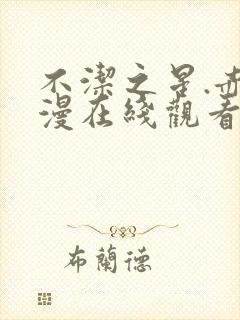 不潔之星.赤
漫在綫觀看
布蘭德